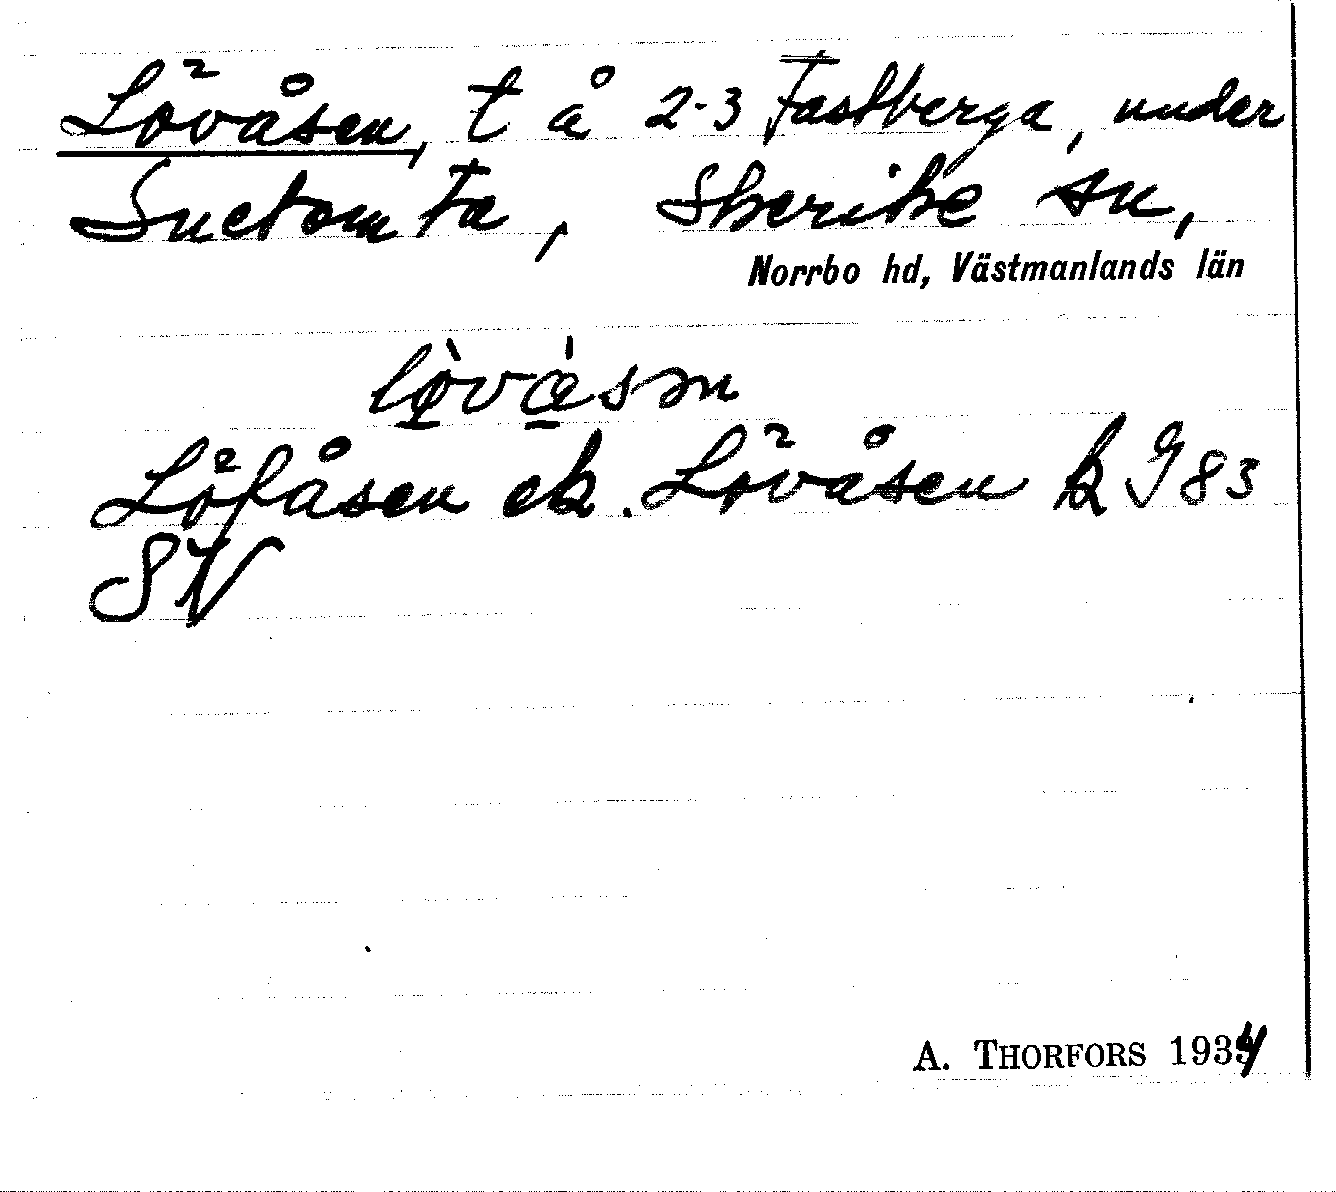 Lövåsen, t å 2-3 Fastberga, under
Snctomta, Skerike sn,
Norrbo hd, Västmanlands län
lø̀vásən
Löfåsen ek. Lövåsen k G 83
SV
A. THORFORS 1934